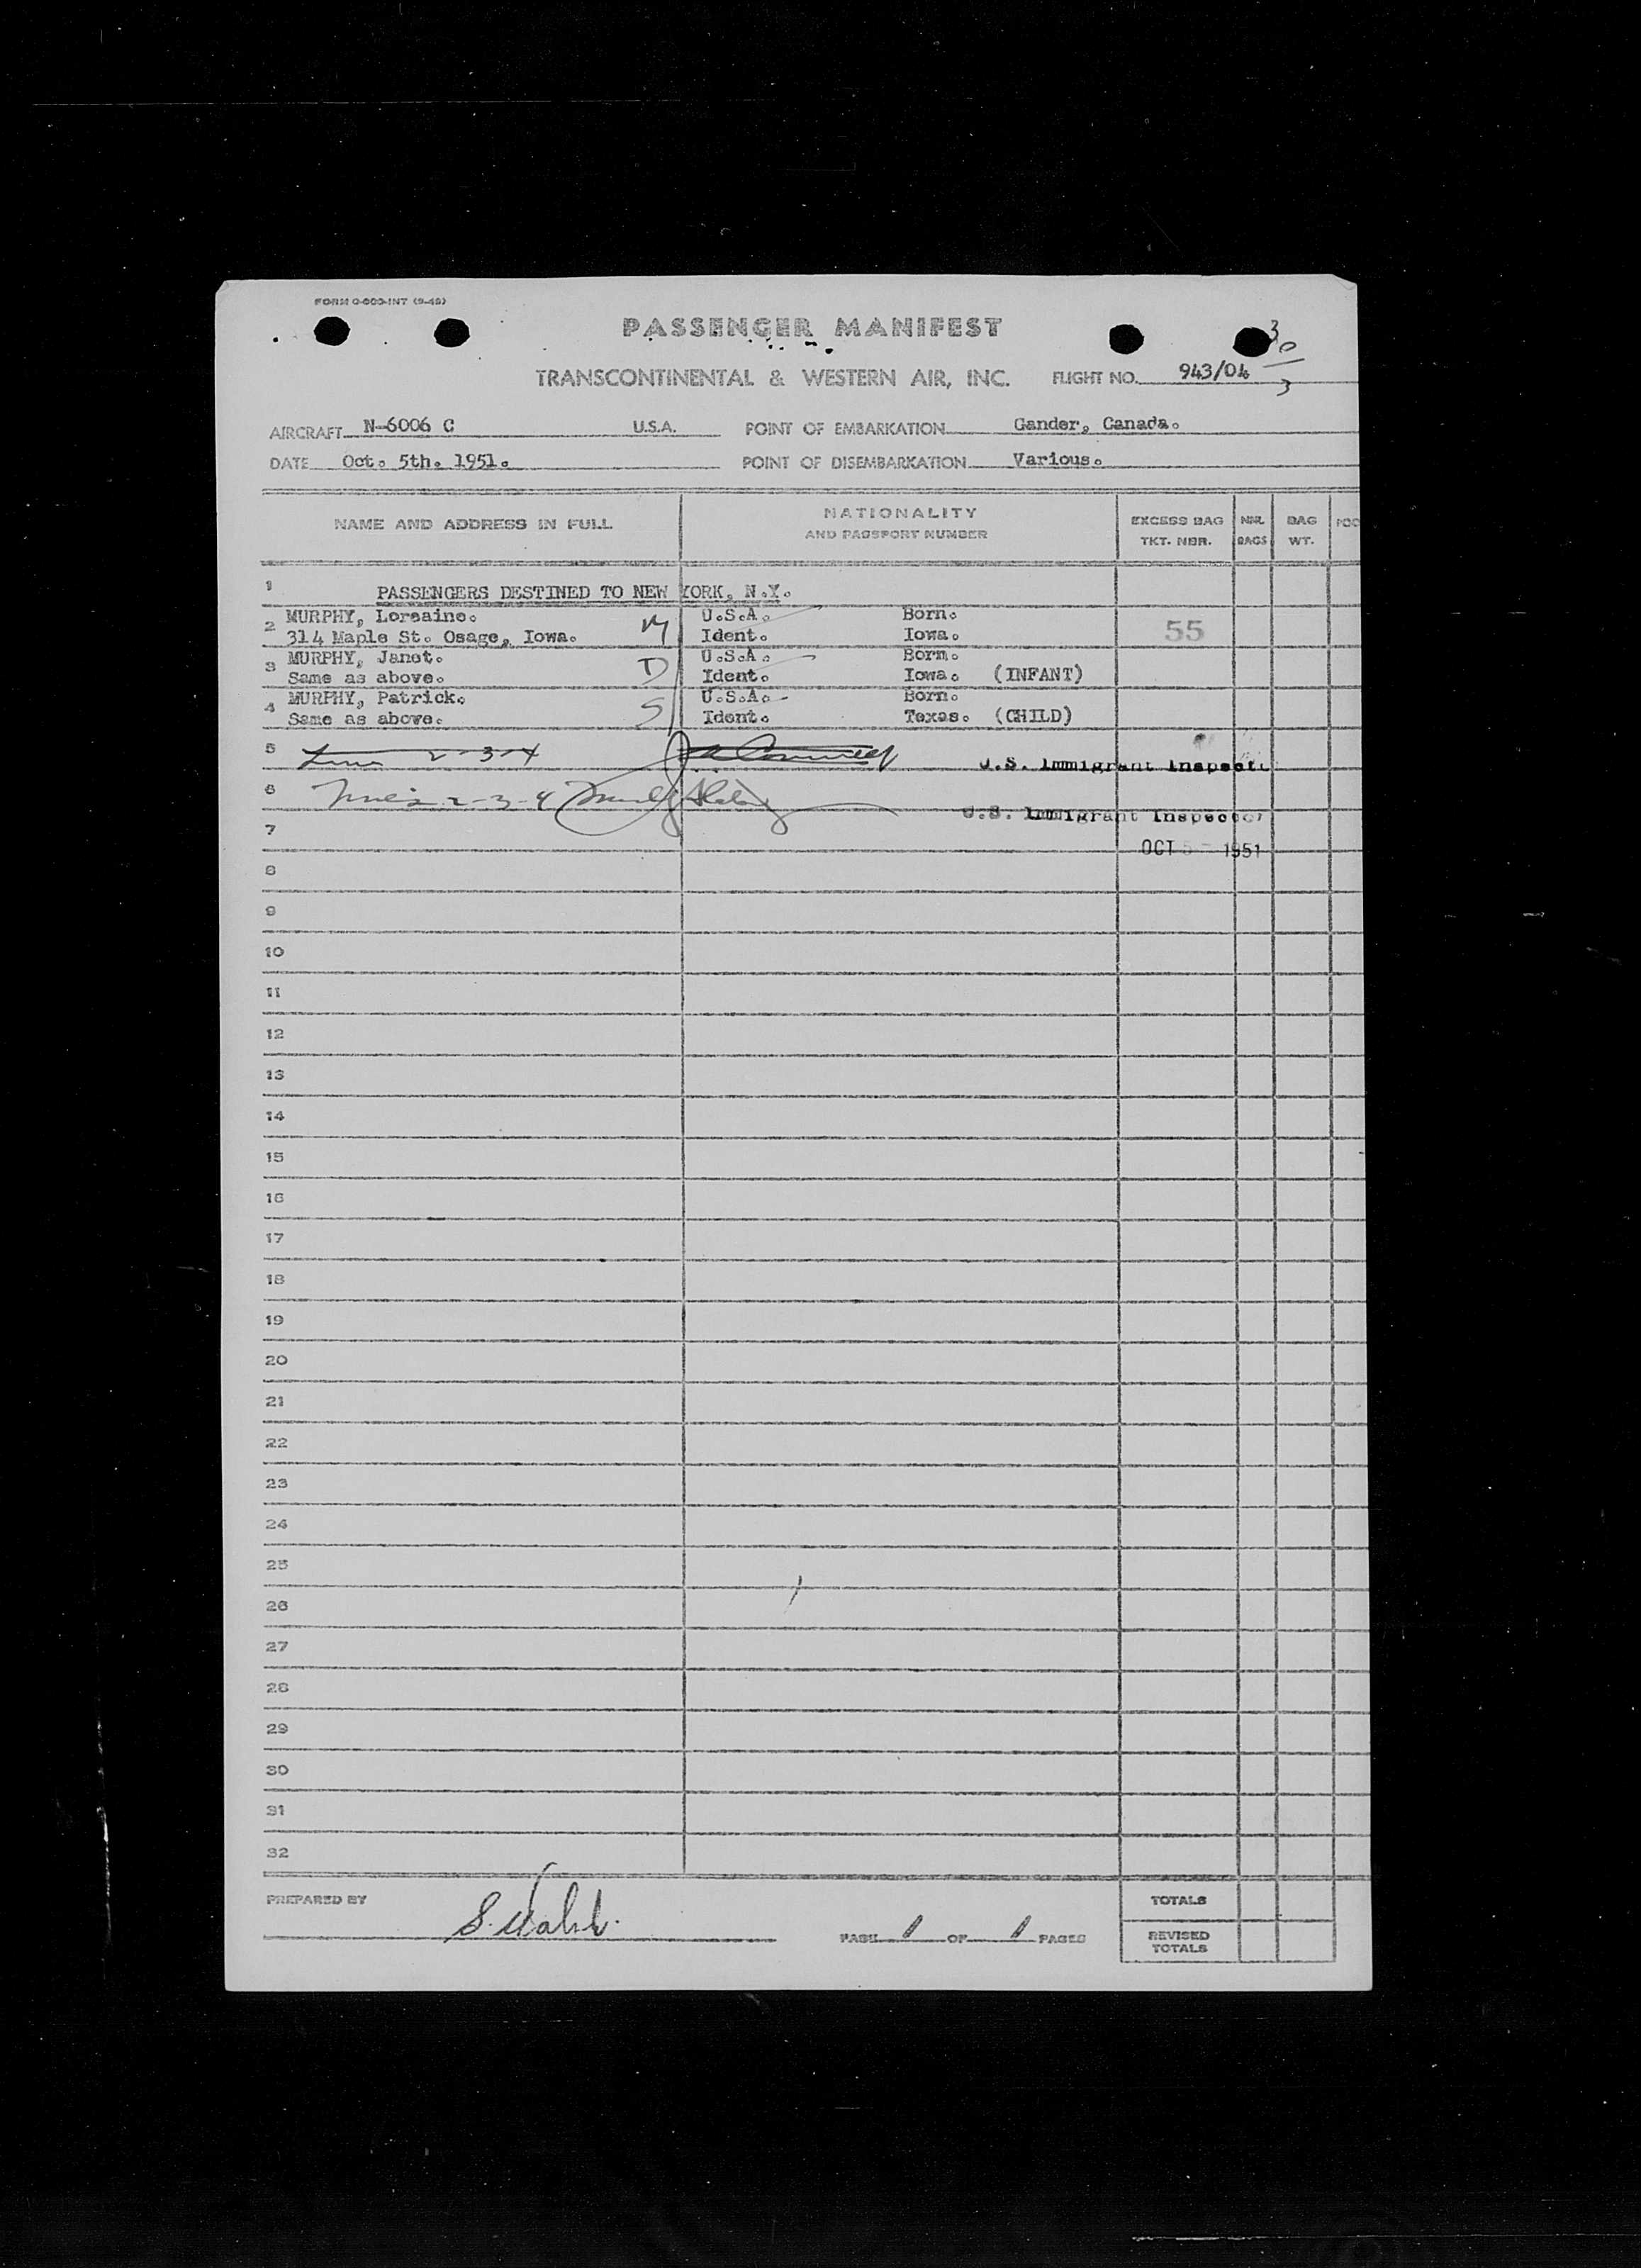 FORM O-600-INT (9-48)
PASSENGER MANIFEST
3
0
3
TRANSCONTINENTAL & WESTERN AIR, INC. FLIGHT NO. 943/04
AIRCRAFT N-6006 C U.S.A. POINT OF EMBARKATION Gander, Canada.
DATE Oct. 5th. 1951. POINT OF DISEMBARKATION Various.
NAME AND ADDRESS IN FULL NATIONALITY AND PASSPORT NUMBER EXCESS BAG TKT. NBR. NBR. BAGS BAG WT.
1 PASSENGERS DESTINED TO NEW YORK, N.Y.
2 MURPHY, Lorraine. M U.S.A. Born.
314 Maple St. Osage, Iowa. Ident. Iowa. 55
3 MURPHY, Janet. D U.S.A. Born.
Same as above. Ident. Iowa. (INFANT)
4 MURPHY, Patrick. S U.S.A. Born.
Same as above. Ident. Texas. (CHILD)
5 2-3-4 U.S. Immigrant Inspect
6 2-3-4
U.S. Immigrant Inspector
7
OCT 5 - 1951
8
9
10
11
12
13
14
15
16
17
18
19
20
21
22
23
24
25
26
27
28
29
30
31
32
PREPARED BY S. PAGE 1 OF 1 PAGES
TOTALS
REVISED TOTALS